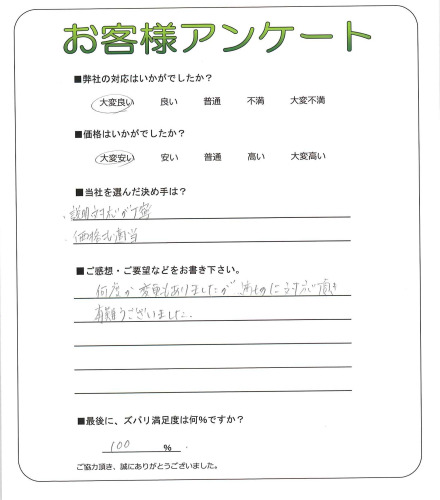 お客様アンケート
■弊社の対応はいかがでしたか？
大変良い 良い 普通 不満 大変不満
■価格はいかがでしたか？
大変安い 安い 普通 高い 大変高い
■当社を選んだ決め手は？
・説明対応が丁寧
・価格も適当
■ご感想・ご要望などをお書き下さい。
何度か変更もありましたが 対応頂き
有難うございました。
■最後に、ズバリ満足度は何％ですか？
100 ％
ご協力頂き、誠にありがとうございました。